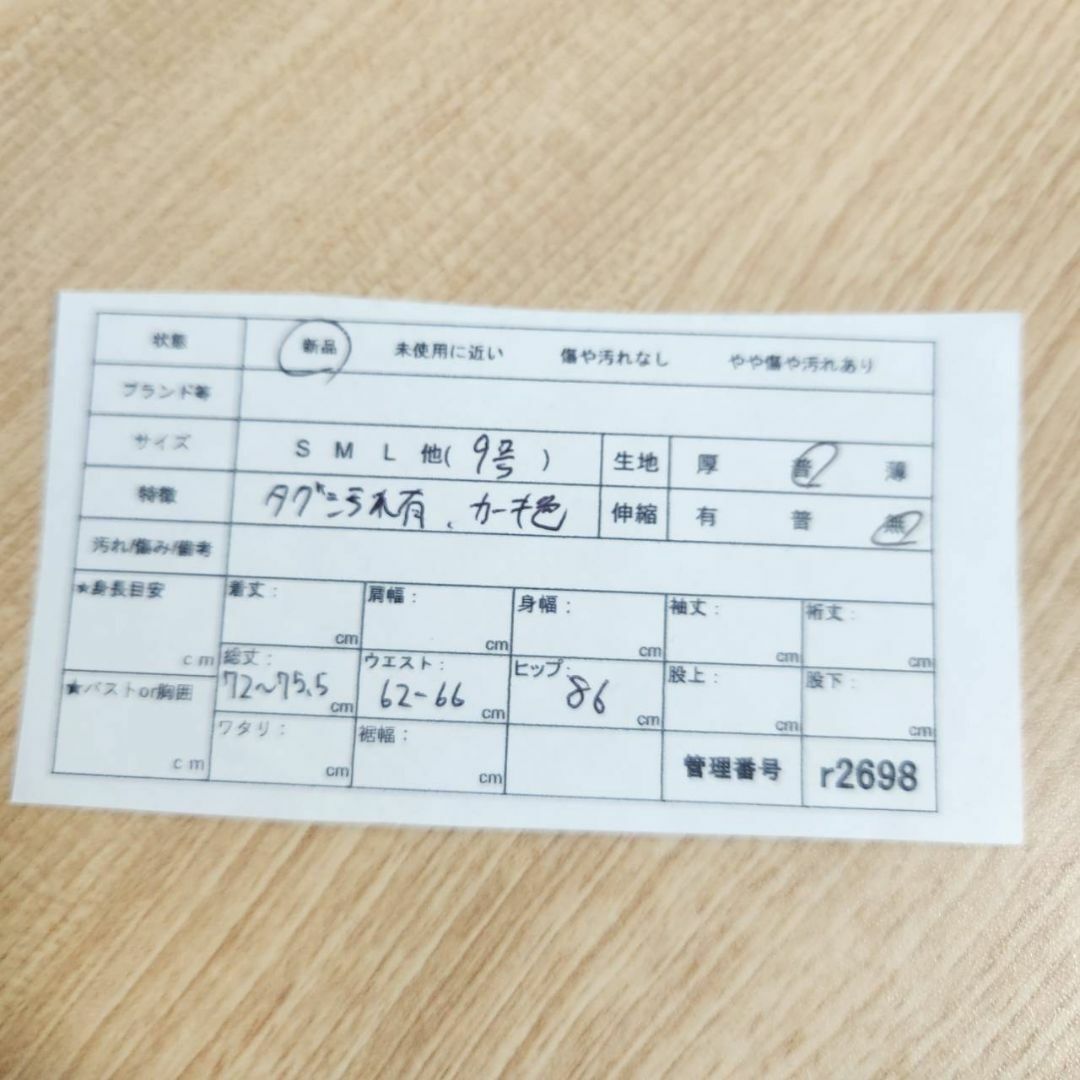 状態 新品 未使用に近い 傷や汚れなし やや傷や汚れあり
ブランド等
サイズ S M L 他( 9号 ) 生地 厚 普 薄
特徴 タグに汚れ有、カーキ色 伸縮 有 普 無
汚れ/傷み/備考
★身長目安 cm 着丈: cm 肩幅: cm 身幅: cm 袖丈: cm 裄丈: cm
総丈: 72~75.5 cm ウエスト: 62-66 cm ヒップ: 86 cm 股上: cm 股下: cm
★バストor胸囲 cm ワタリ: cm 裾幅: cm 管理番号 r2698